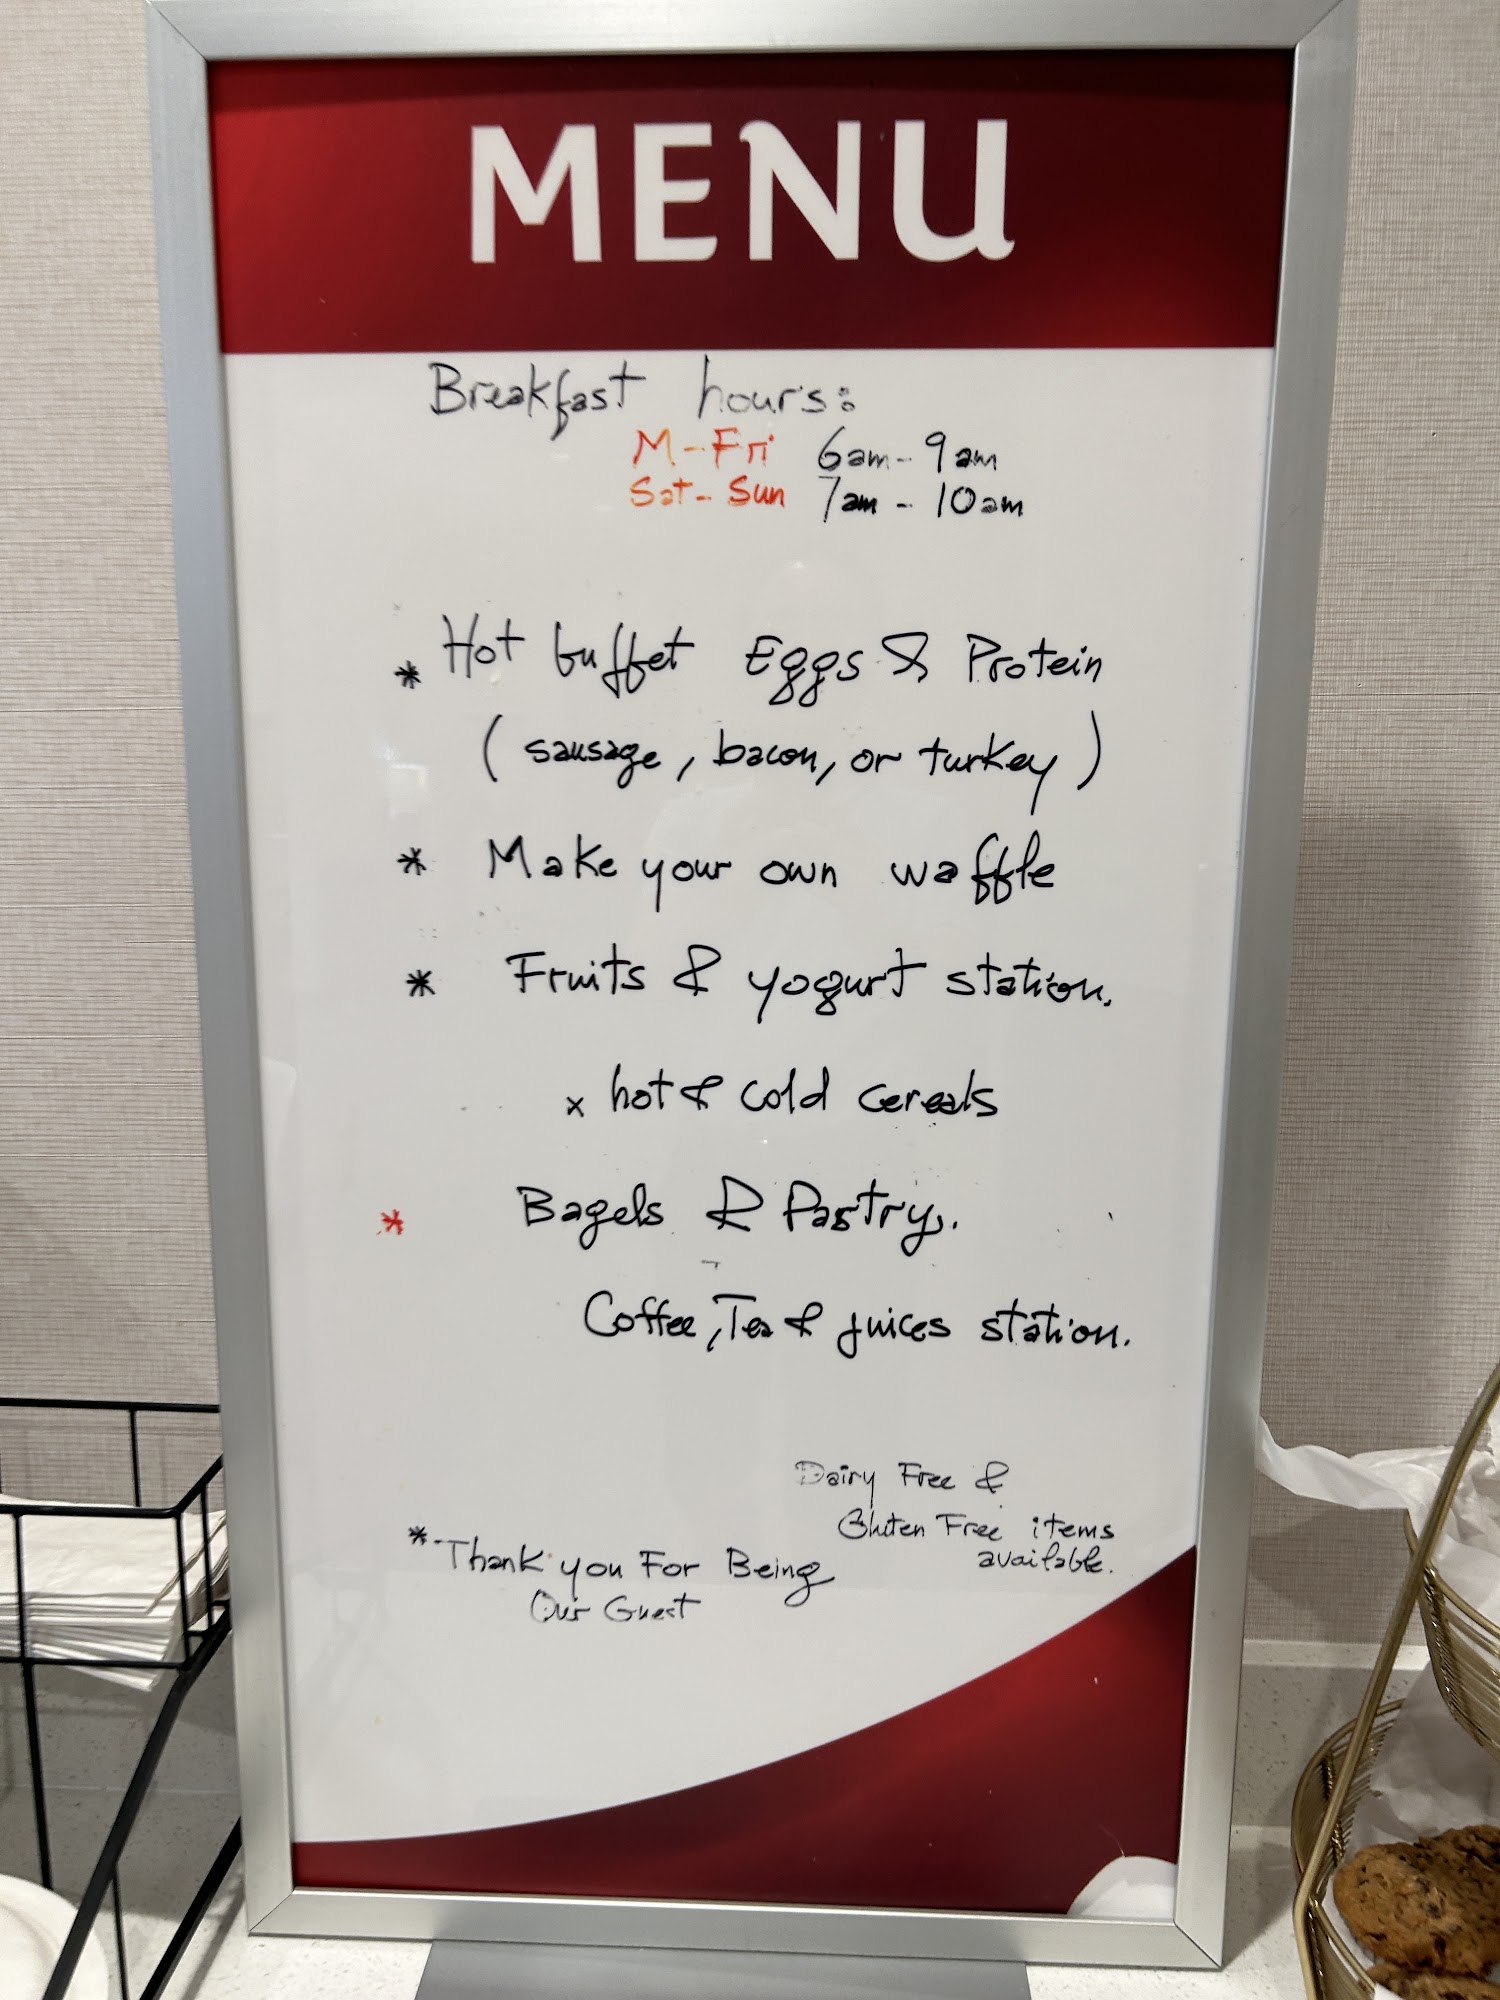 MENU
Breakfast hours:
M-Fri 6am-9am
Sat-Sun 7am-10am
* Hot buffet Eggs & Protein
(sausage, bacon, or turkey)
* Make your own waffle
* Fruits & yogurt station.
x hot & cold cereals
* Bagels & Pastry.
Coffee, Tea & juices station.
Dairy Free &
Gluten Free items
available.
* Thank you For Being
Our Guest